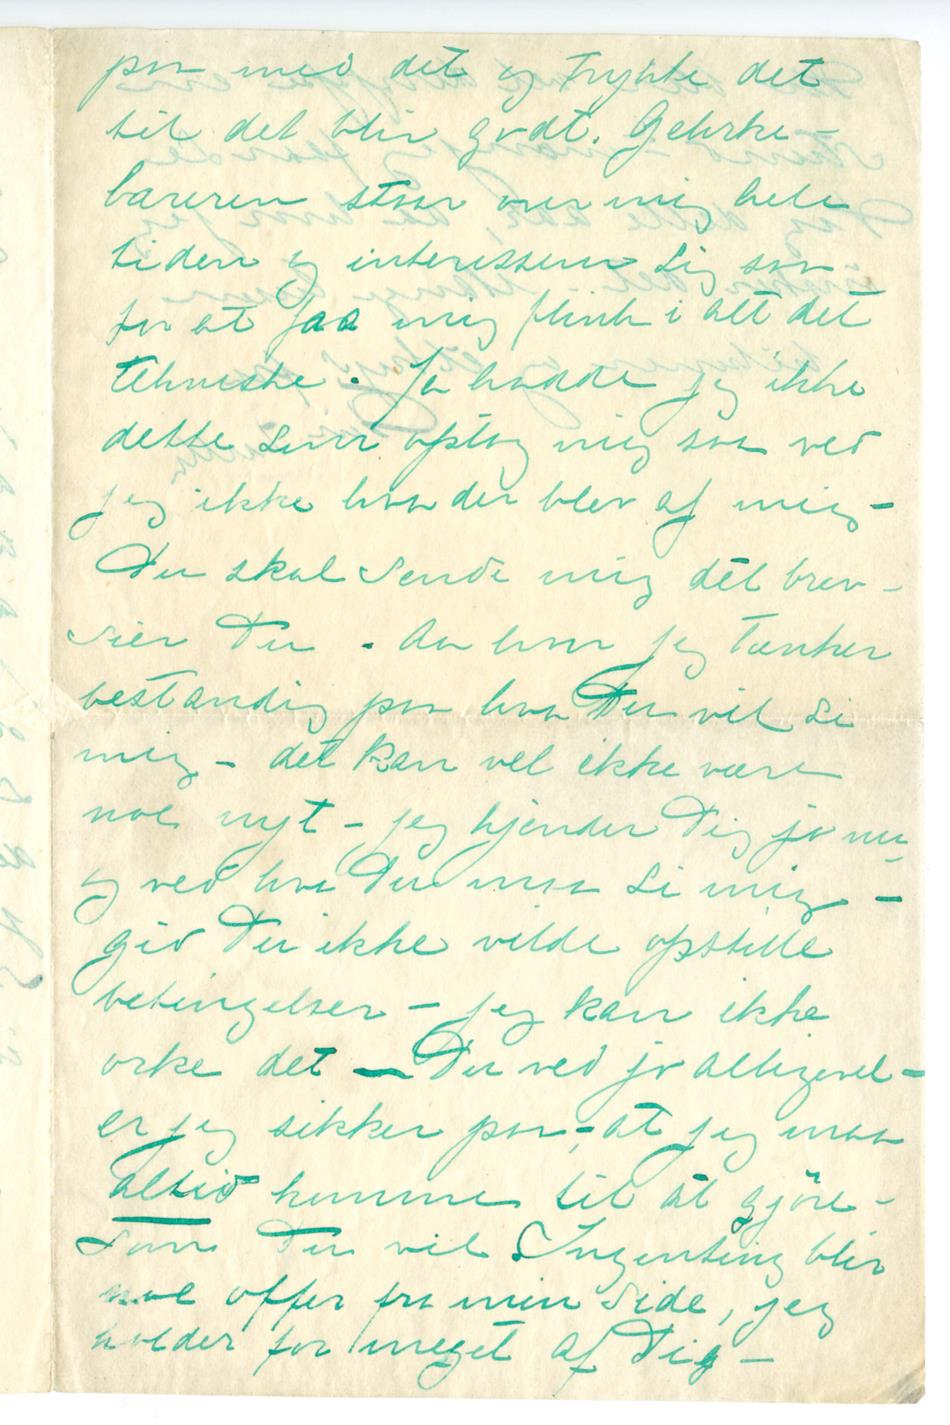 paa med det og trykke det
til det blir godt. Gehrke-
bareren staar over mig hele
tiden og interesserer sig saa
for at faa mig flink i alt det
tekniske. Ja hadde jeg ikke
dette som optog mig saa ved
jeg ikke hva der blev af mig –
Du skal sende mig det brev –
sier Du . Aa hvor jeg tænker
bestandig paa hva Du vil si
mig – det kan vel ikke være
noe nyt – jeg kjender Dig jo nu –
og ved hva Du maa si mig –
gid Du ikke vilde opstille
betingelser – jeg kan ikke
orke det – Du ved jo alligevel –
er jeg sikker paa – at jeg maa
altid komme til at gjøre –
som Du vil. Ingenting blir
noe offer fra min Side, jeg
holder for meget af Dig –